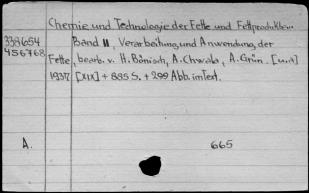 Chemie und Technologie der Fette und Fettprodukte.
338654 Band II, Verarbeitung und Anwendung der
456768 Fette, bearb. v. H. Bönisch, A. Chwala, A. Grün. [u.a]
1937 [XIX] + 885 S. + 299 Abb. im Text.
A. 665